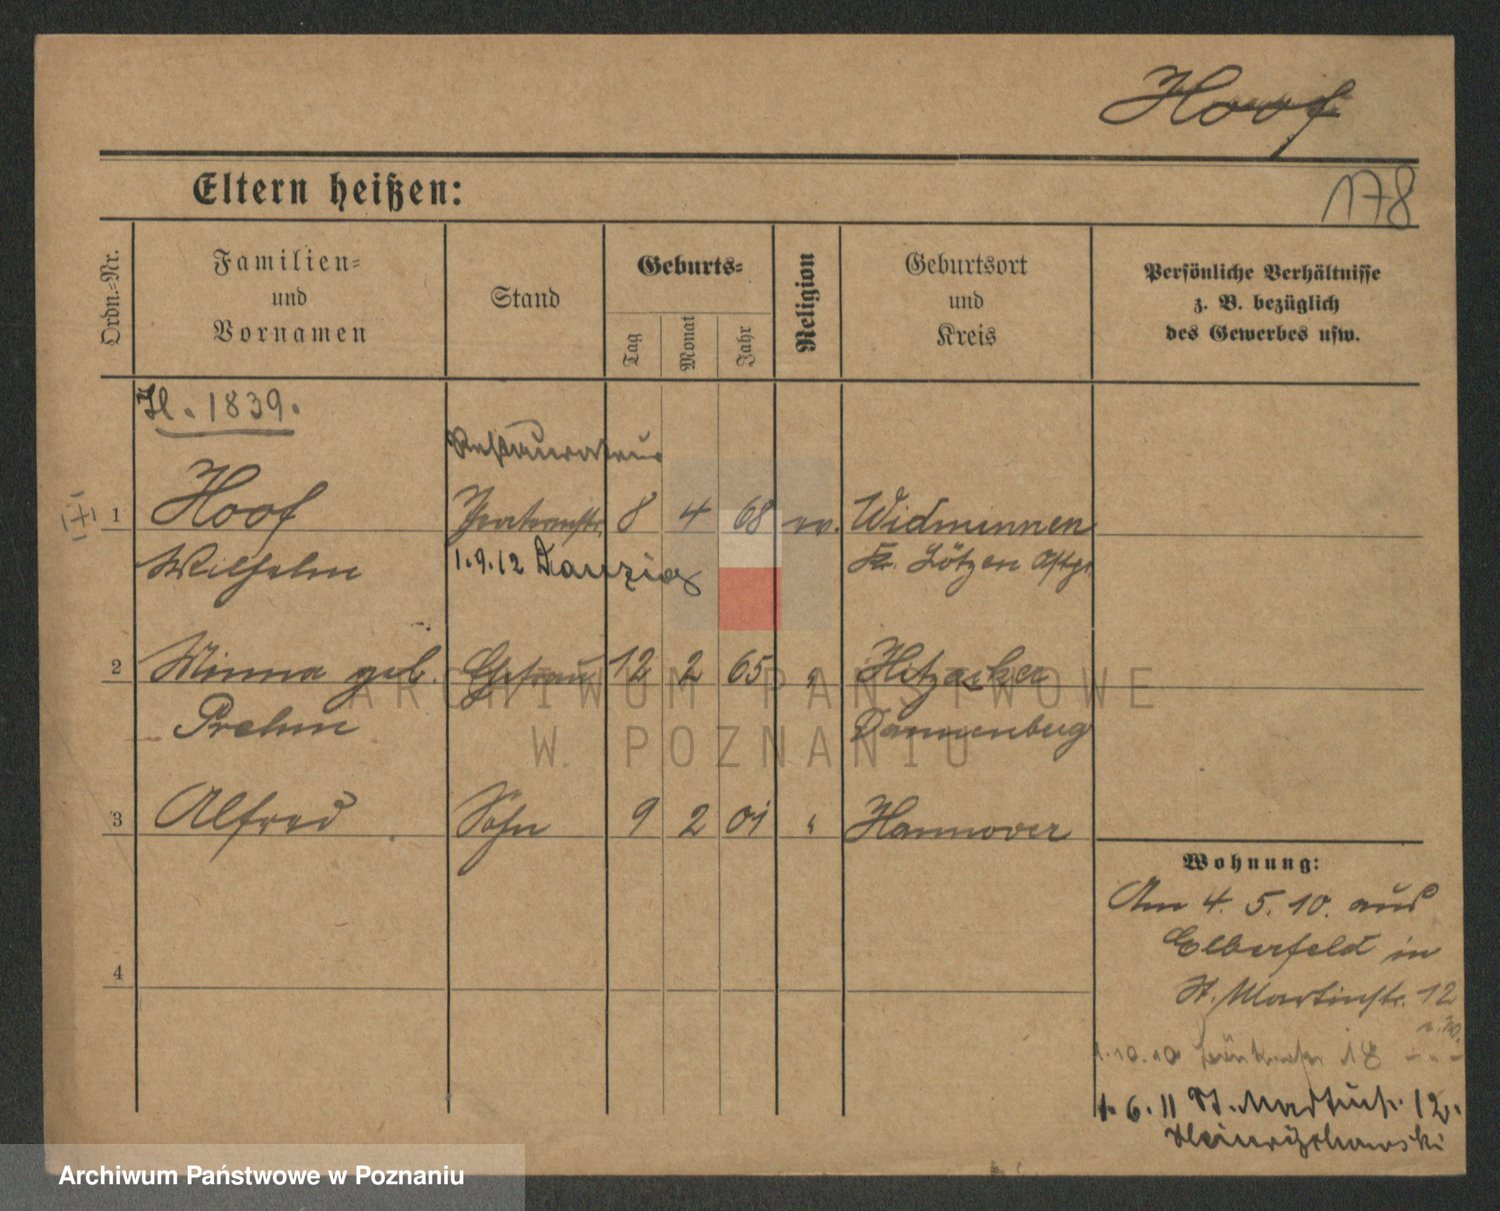 Hoof
178
Eltern heißen:
Ordn.-Nr.
Familien-
und
Vornamen
Stand
Geburts-
Tag
Monat
Jahr
Religion
Geburtsort
und
Kreis
Persönliche Verhältnisse
z. B. bezüglich
des Gewerbes usw.
H. 1839.
Restaurateur
1 Hoof 8 4 68 ev. Widminnen
Wilhelm 1.9.12 Danzig Kr. Lötzen Ostpr.
2 Minna geb. Ehefrau 12 2 65 " Hitzacker
Prehm Dannenberg
3 Alfred Sohn 9 2 01 " Hannover
4
Wohnung:
Am 4. 5. 10. aus
Elberfeld in
St. Martinstr. 12
1.10.10 18
1.6.11 St. Martinstr. 12.
ARCHIWUM PAŃSTWOWE
W POZNANIU
Archiwum Państwowe w Poznaniu